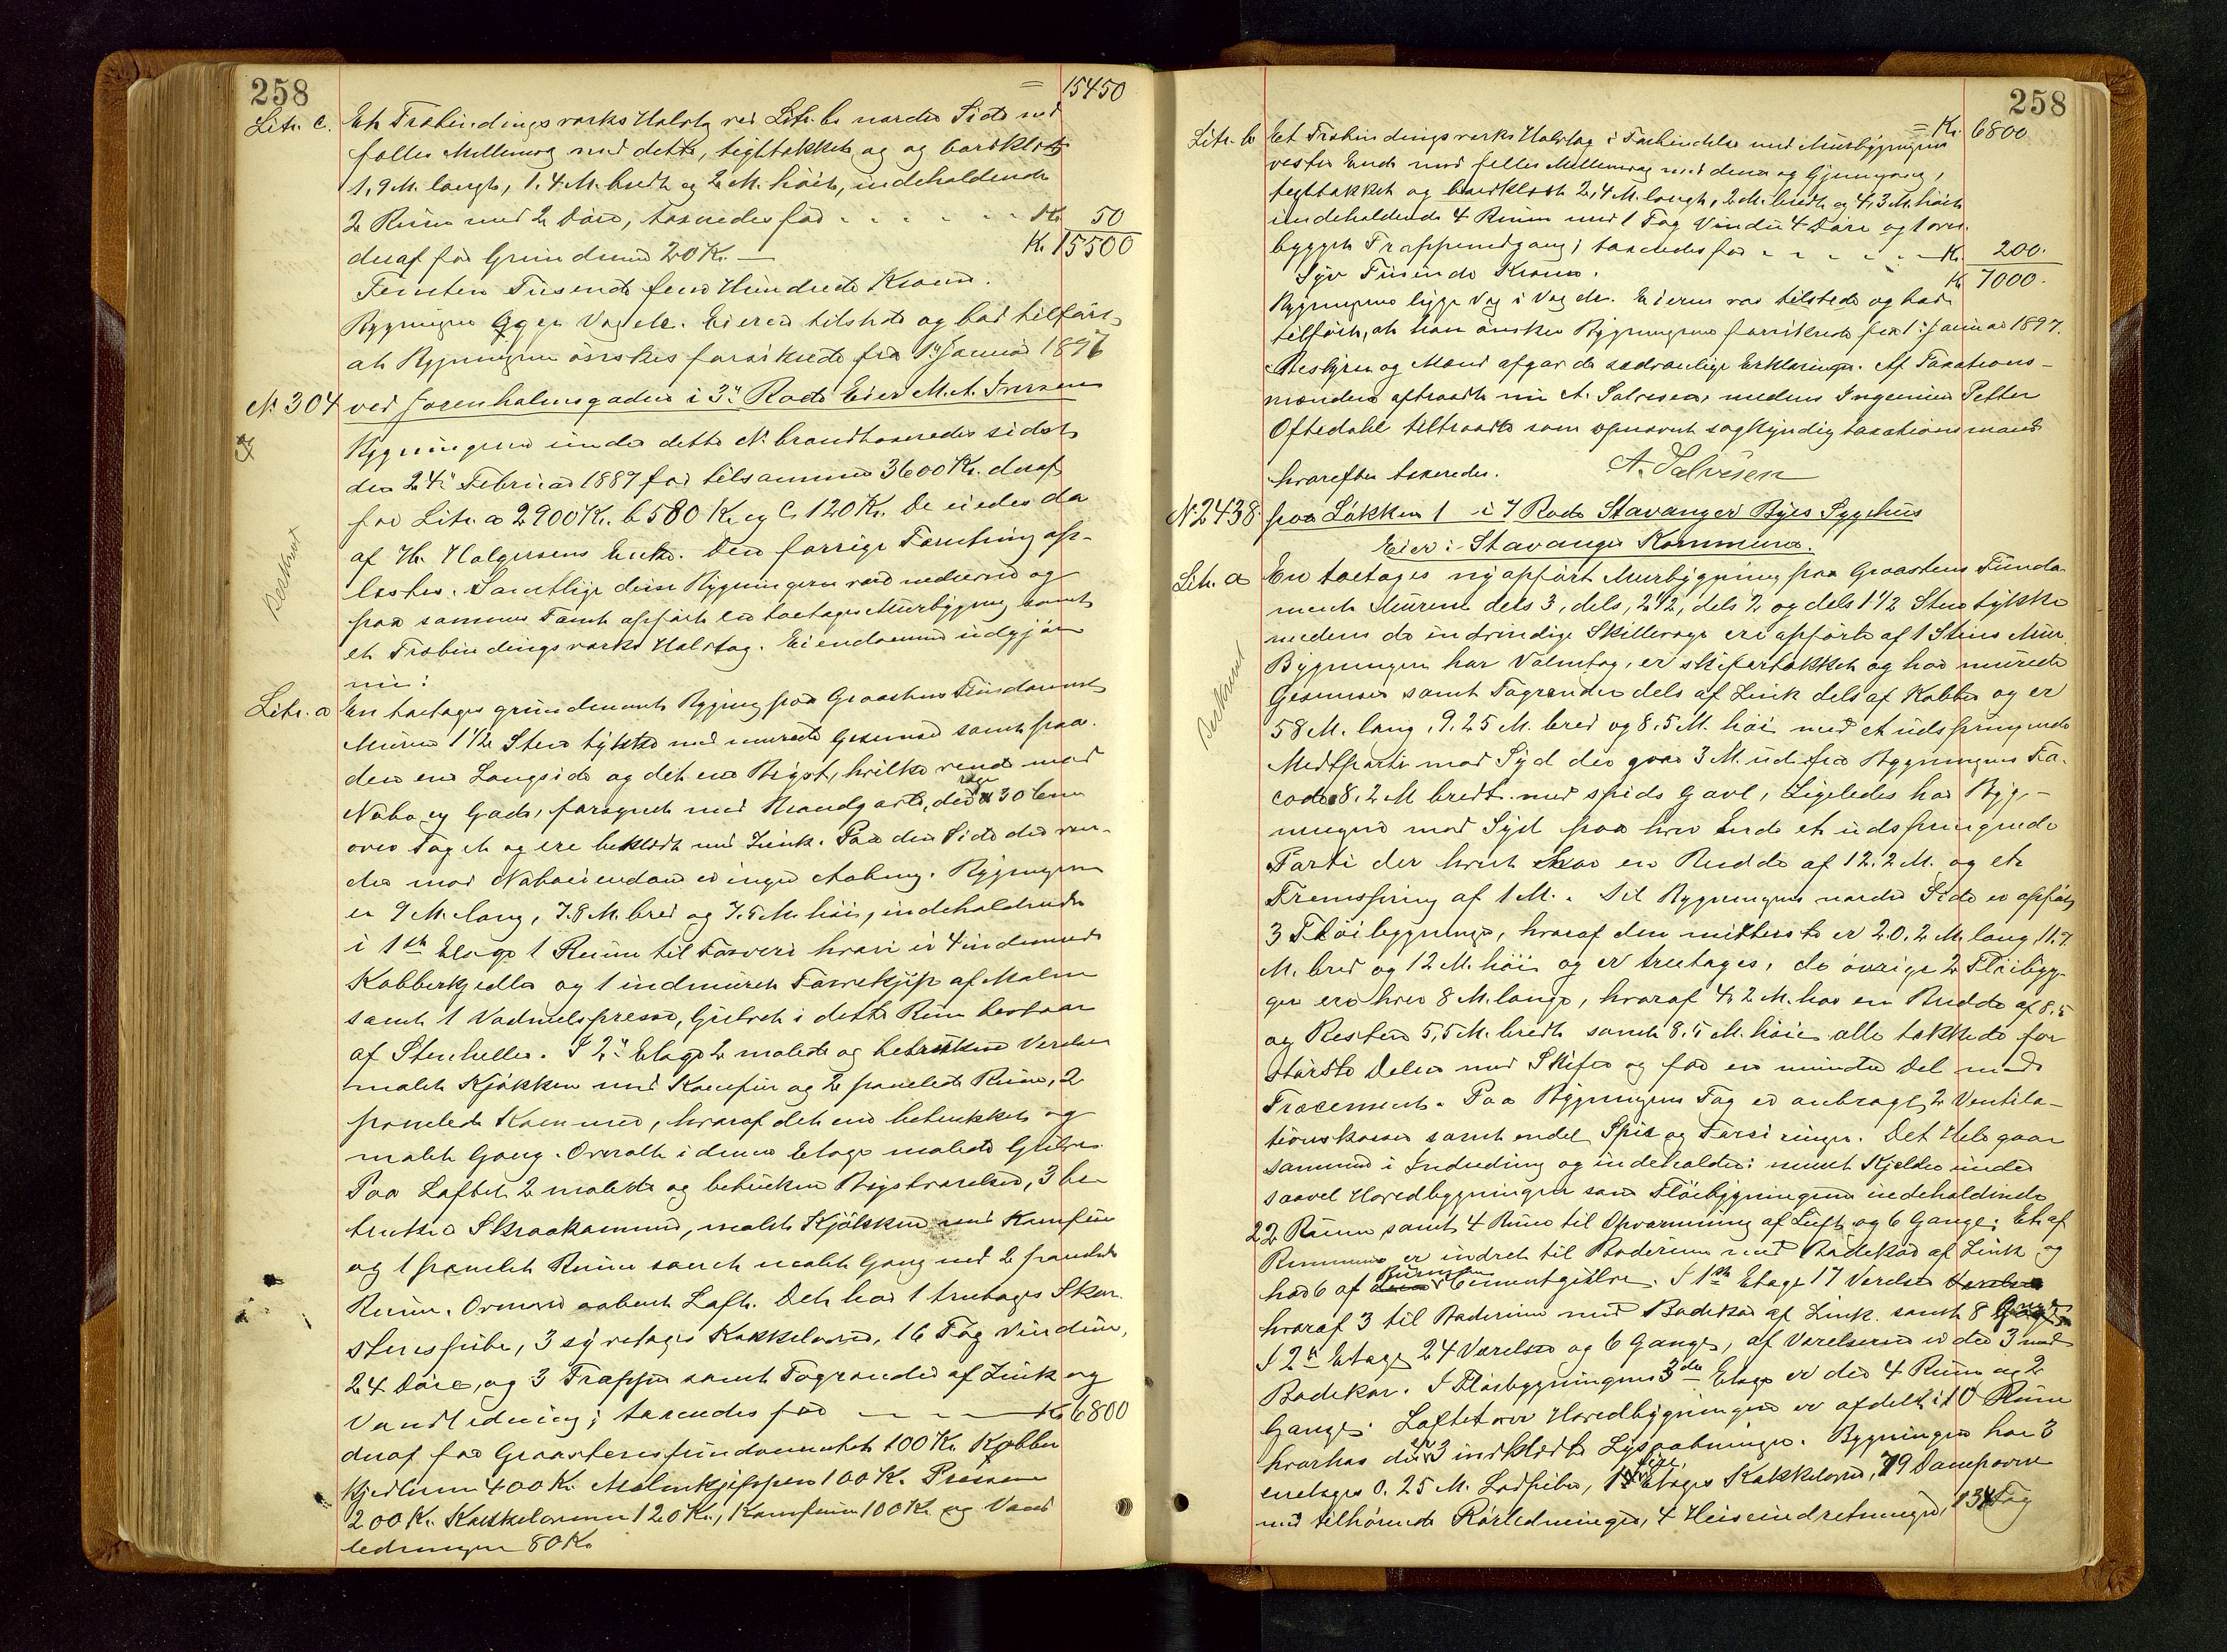 258
= 15450
Litr. c. Et Træbindingsværks Halvtag ved Litr. b's nordre Side med
fælles Mellemvæg med dette, tegltækket og og bordklædt
1,9 M. langt, 1.4 M. bredt og 2 M. høit, indeholdende
2 Rum med 2 Døre, taxeredes for - - - - - - Kr. 50
Kr. 15500
deraf for Grundmur 20 Kr. —
Femten Tusende fem Hundrede Kroner.
Bygningen ligger Vag de. Eieren tilstede og bad tilført,
at Bygningerne ønskes forsikrede fra 1ste Januar 1897
No 304 ved Jorenholmsgaden i 3die Rode Eier M. A. Iversen
Beskrevet
Bygningerne under dette No brandtaxeredes sidst
den 24de Februar 1887 for tilsammen 3600 Kr. deraf
for Litr. a 2900 Kr. b 580 Kr. og c 120 Kr. De eiedes da
af H. Holgersens Enke. Den forrige Forretning op-
læstes. Samtlige disse Bygninger ere nedrevne og
paa sammes Tomt opført en toetages Murbygning samt
et Træbindingsværks Halvtag. Eiendommen udgjør
nu:
Litr. a En toetages grundmuret Bygning paa Graastens Fundament
Murene 1 1/2 Sten tykke med murede Gesimser samt paa
den ene Langside og det ene Bigst, hvilke vende mod
Nabo og Gade, forsynet med Brandgavle, der rage 30 Ctm
over Taget og ere beklædt med Zink. Paa den Side der ven-
der mod Naboeiendom er ingen Aabning. Bygningen
er 9 M. lang, 7.8 M. bred og 7.5 M. høi, indeholdende
i 1ste Etage 1 Rum til Farveri hvori er 4 indmurede
Kobberkjedler og 1 indmuret Farvekjip af Malm
samt 1 Vadmelspresse, Gulvet i dette Rum bestaar
af Stenheller. I 2den Etage 2 malede og betrukne Værelser
malet Kjøkken med Komfur og 2 panelede Rum, 2
panelede Kammer, hvoraf det ene betrukket og
malet Gang. Overalt i denne Etage malede Gulve
Paa Loftet 2 malede og betrukne Bigstværelser, 3 be-
trukne Skraakammer, malet Kjøkken med Komfur
og 1 panelet Rum samt malet Gang med 2 panelede
Rum. Ovenover aabent Loft. Det har 1 treetages Skor-
stenspibe, 3 syvetages Kakkelovne, 16 Fag Vinduer,
24 Døre, og 3 Trapper samt Tagrender af Zink og
Vandledning; taxeredes for — — — Kr. 6800
deraf for Graastensfundamentet 100 Kr. Kobber
Kjedlerne 400 Kr. Malmkjippen 100 Kr. Pressen
200 Kr. Kakkelovnene 120 Kr., Komfurene 100 Kr. og Vand
ledningen 80 Kr.
258
= Kr. 6800
Litr. b Et Træbindingsværks Halvtag i Forbindelse med Murbygningens
vestre Ende med fælles Mellemvæg med denne og Gjennemgang,
tegltækket og bordklædt 2,4 M. langt, 2 M. bredt og 4,3 M. høit
indeholdende 4 Rum med 1 Fag Vindu 4 Døre og 1 over-
bygget Trappenedgang; taxeredes for - - - - - Kr. 200.
Syv Tusinde Kroner. Kr. 7000.
Bygningerne ligge Vag i Vag de. Eieren var tilstede og bad
tilført, at han ønsker Bygningerne forsikrede fra 1ste Januar 1897.
Bestyrer og Mænd afgav de sædvanlige Erklæringer. Af Taxations-
mændene aftraadte nu A. Salvesen, medens Ingeniør Petter
Oftedahl tiltraadte som opnævnt sagkyndig taxationsmand
hvorefter taxeredes. A. Salvesen
No 2438 paa Løkken 1 i 7 Rode Stavanger Byes Sygehus
Eier: Stavanger Kommune.
Beskrevet
Litr. a En toetages ny opført Murbygning paa Graastens Funda-
ment Murene dels 3, dels, 2 1/2, dels 2 og dels 1 1/2 Sten tykke
medens de indvendige Skillevæge ere opførte af 1 Stens Mur
Bygningen har Valmtag, er skifertækket og har murede
Gesimser samt Tagrender dels af Zink dels af Kobber og er
58 M. lang, 9.25 M. bred og 8.5 M. høi med et udspringende
Midtparti mod Syd der gaar 3 M. ud fra Bygningens Fa-
cade 8.2 M bredt med spids Gavl, Ligeledes har Byg-
ningen mod Syd paa hver Ende et udspringende
Parti der hvert har en Bredde af 12.2 M. og et
Fremspring af 1 M. . Til Bygningens nordre Side er opført
3 Fløibygninger, hvoraf den midterste er 20.2 M. lang, 11.7
M. bred og 12 M. høi og er treetages, de øvrige 2 Fløibyg-
ger ere hver 8 M. lange, hvoraf 4,2 M. har en Bredde af 8.5
og Resten 5,5 M. bredt samt 8.5 M. høie alle tækkede for
største Delen med Skifer og for en mindre Del med
Træcement. Paa Bygningens Tag er anbragt 2 Ventila-
tionskasser samt endel Spir og Forsiringer. Det Hele gaar
sammen i Indredning og indeholder: muret Kjelder under
saavel Hovedbygningen som Fløibygningerne indeholdende
22 Rum samt 4 Rum til Opvarmning af Luft og 6 Gange; Et af
Rummene er indredet til Baderum med Badekar af Zink og
har 6 af Rummene Cementgulve. I 1ste Etage 17 Værelser
hvoraf 3 til Baderum med Badekar af Zink samt 8 Gange
I 2den Etage 24 Værelser og 6 Gange, af Værelserne er der 3 med
Badekar. I Fløibygningens 3die Etage er der 4 Rum og 2
Gange. Loftet over Hovedbygningen er afdelt i 10 Rum
hvorhos der er 3 indklædte Lysaabninger. Bygningen har 3
enetages 0.25 M. Lodpiber, 1 fireetages Kakkelovn, 79 Dampovne
med tilhørende Rørledninger, 4 Heiseindretninger, 134 Fag